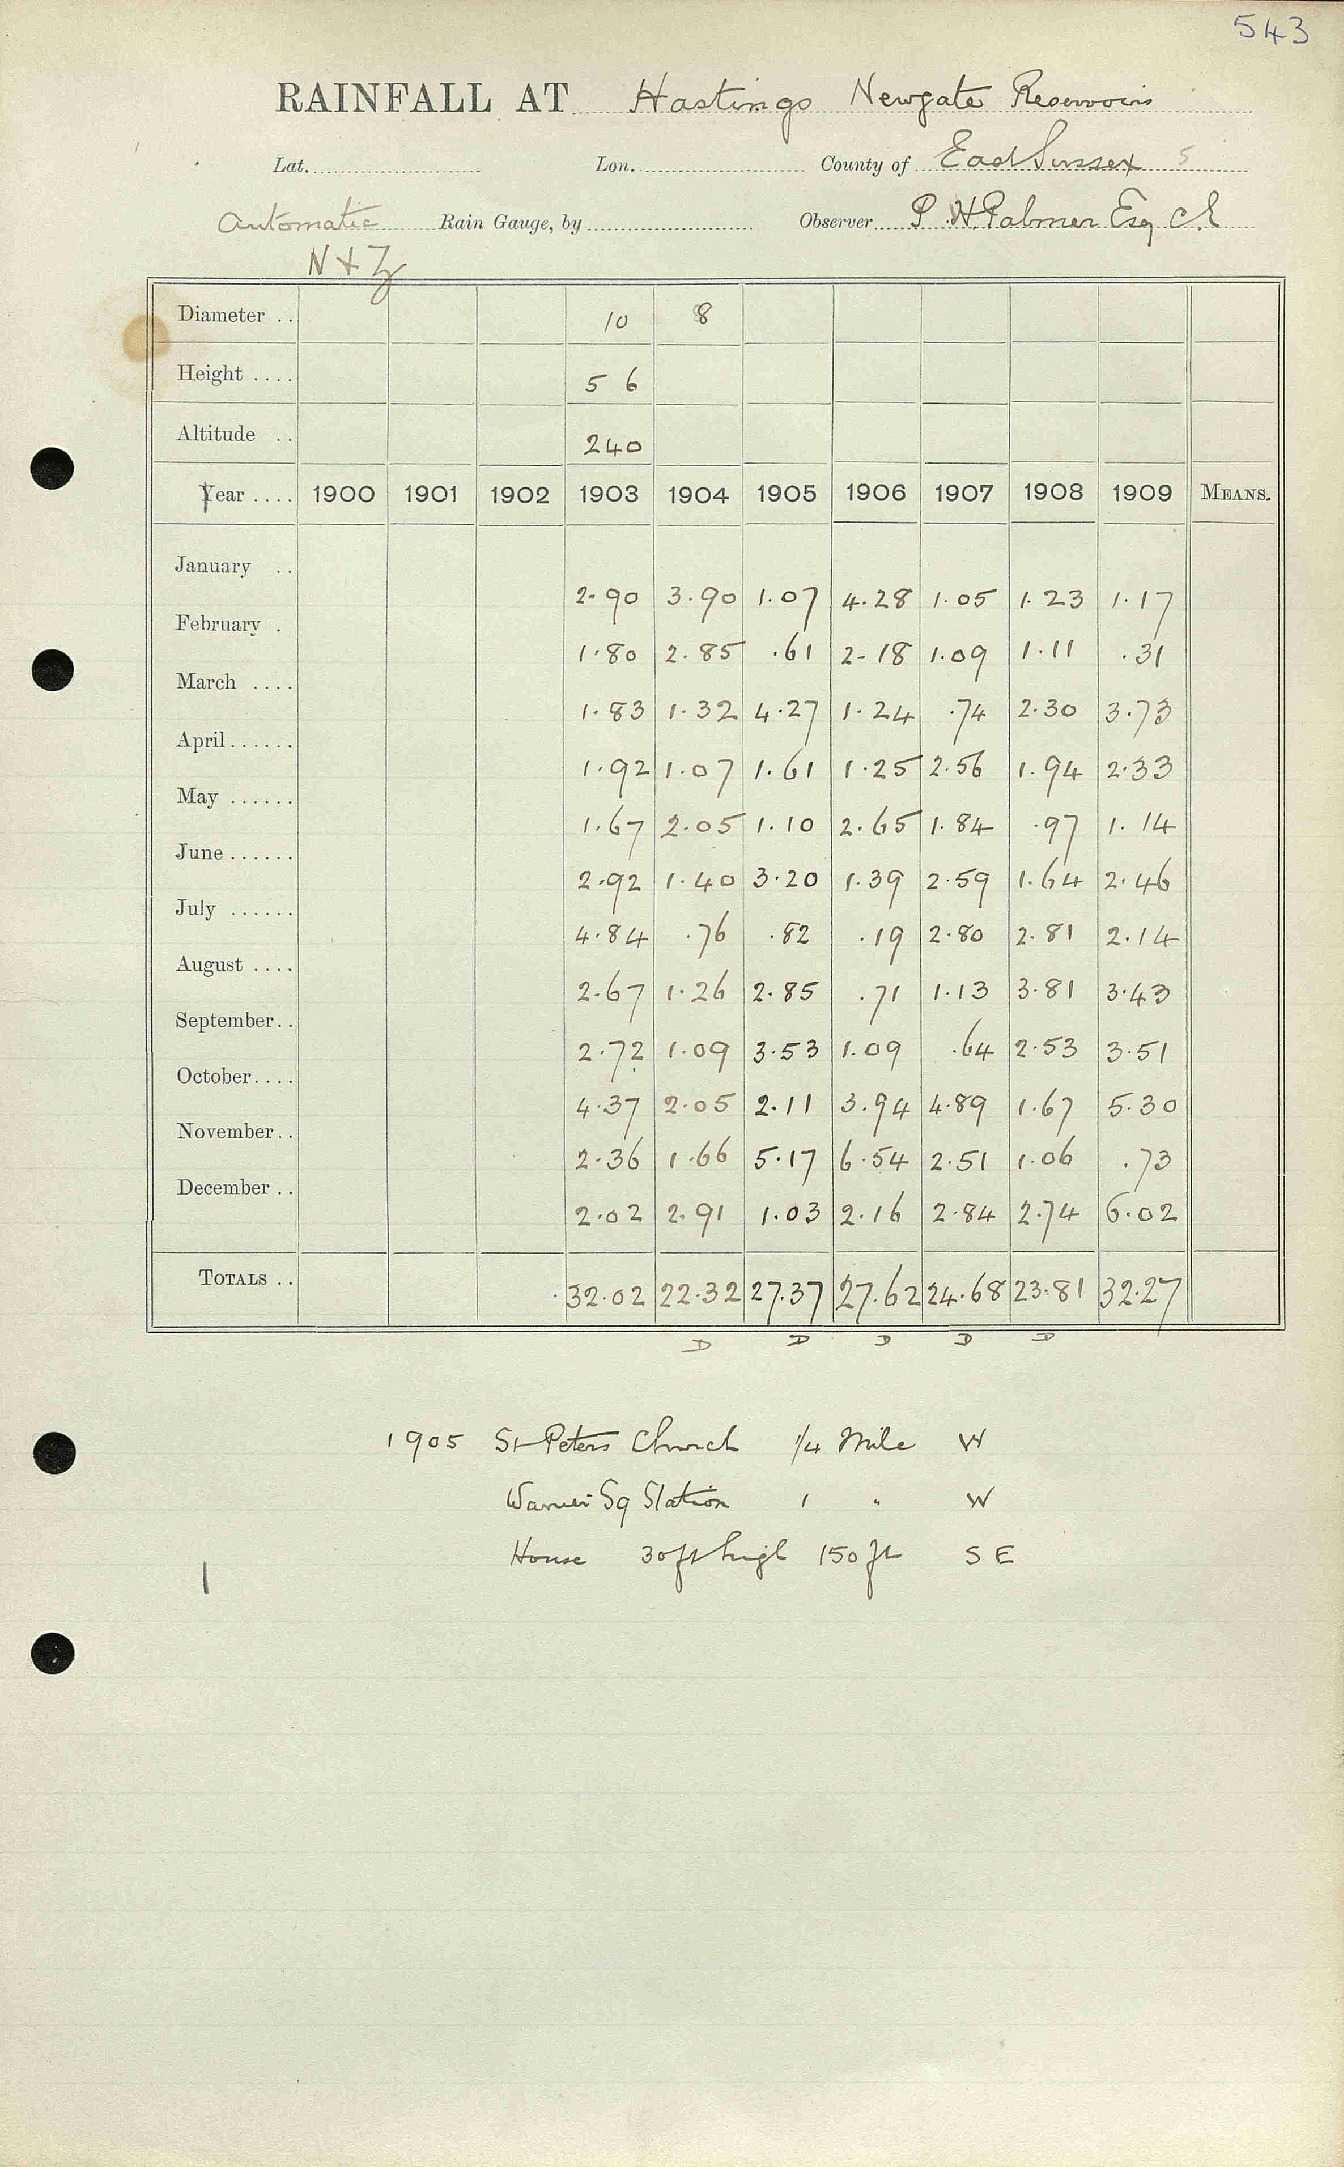 543
RAINFALL AT Hastings Newgate Reservoir
Lat. Lon. County of East Sussex 5
Automatic Rain Gauge, by Observer P. H. Palmer Esq C.E
N & Z
Diameter .. 10 8
Height .... 5 6
Altitude .. 240
Year .... 1900 1901 1902 1903 1904 1905 1906 1907 1908 1909 MEANS.
January .. 2.90 3.90 1.07 4.28 1.05 1.23 1.17
February . 1.80 2.85 .61 2.18 1.09 1.11 .31
March .... 1.83 1.32 4.27 1.24 .74 2.30 3.73
April...... 1.92 1.07 1.61 1.25 2.56 1.94 2.33
May ...... 1.67 2.05 1.10 2.65 1.84 .97 1.14
June...... 2.92 1.40 3.20 1.39 2.59 1.64 2.46
July ...... 4.84 .76 .82 .19 2.80 2.81 2.14
August .... 2.67 1.26 2.85 .71 1.13 3.81 3.43
September.. 2.72 1.09 3.53 1.09 .64 2.53 3.51
October.... 4.37 2.05 2.11 3.94 4.89 1.67 5.30
November.. 2.36 1.66 5.17 6.54 2.51 1.06 .73
December .. 2.02 2.91 1.03 2.16 2.84 2.74 6.02
TOTALS .. 32.02 22.32 27.37 27.62 24.68 23.81 32.27
D D D D D
1905 St Peters Church 1/4 Mile W
Warrior Sq Station 1 " W
House 30ft high 150 ft S E